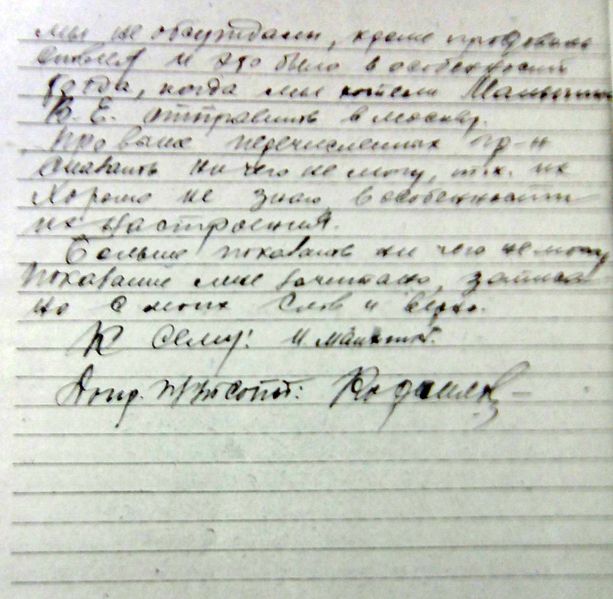 мы не обсуждали, кроме
и это было в особенности
тогда, когда мы хотели
В. Е. отправить в Москву.
Про выше перечисленных гр-н
сказать ни чего не могу, т.к. их
хорошо не знаю, в особенности
их настроения.
Больше показать ни чего не могу
показание мне зачитано, записа
но с моих слов и верно.
К сему:
Допр.